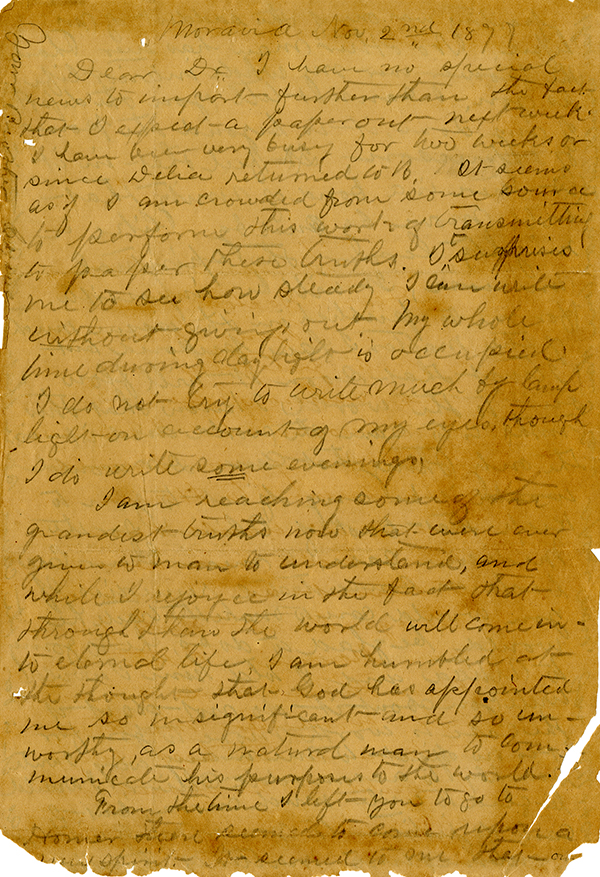 Moravia Nov. 2nd 1877
Dear Dr. I have no special
news to import further than the fact
that I expect a paper out next week.
I have been very busy for two weeks or
since Delia returned to B. It seems
as if I am crowded from some source
to perform this work of transmitting
to paper these truths. It surprises
me to see how steady I can write
without giving out My whole
time during day light is occupied.
I do not try to write much by lamp
light on account of my eyes, though
I do write some evenings.
I am reaching some of the
grandest truths now that were ever
given to man to understand, and
while I rejoyce in the fact that
through them the world will come in-
to eternal life, I am humbled at
the thought that God has appointed
me so insignificant and so un-
worthy, as a natural man to com-
municate his purposes to the world.
From the time I left you to go to
Homer there seemed to come upon a
new spirit. It seemed to me that